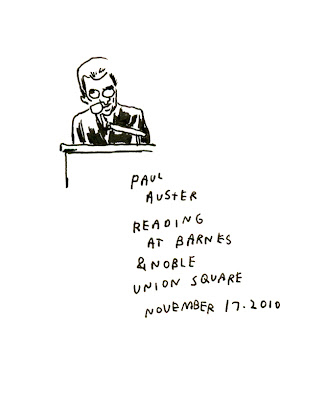 PAUL
AUSTER
READING
AT BARNES
& NOBLE
UNION SQUARE
NOVEMBER 17.2010